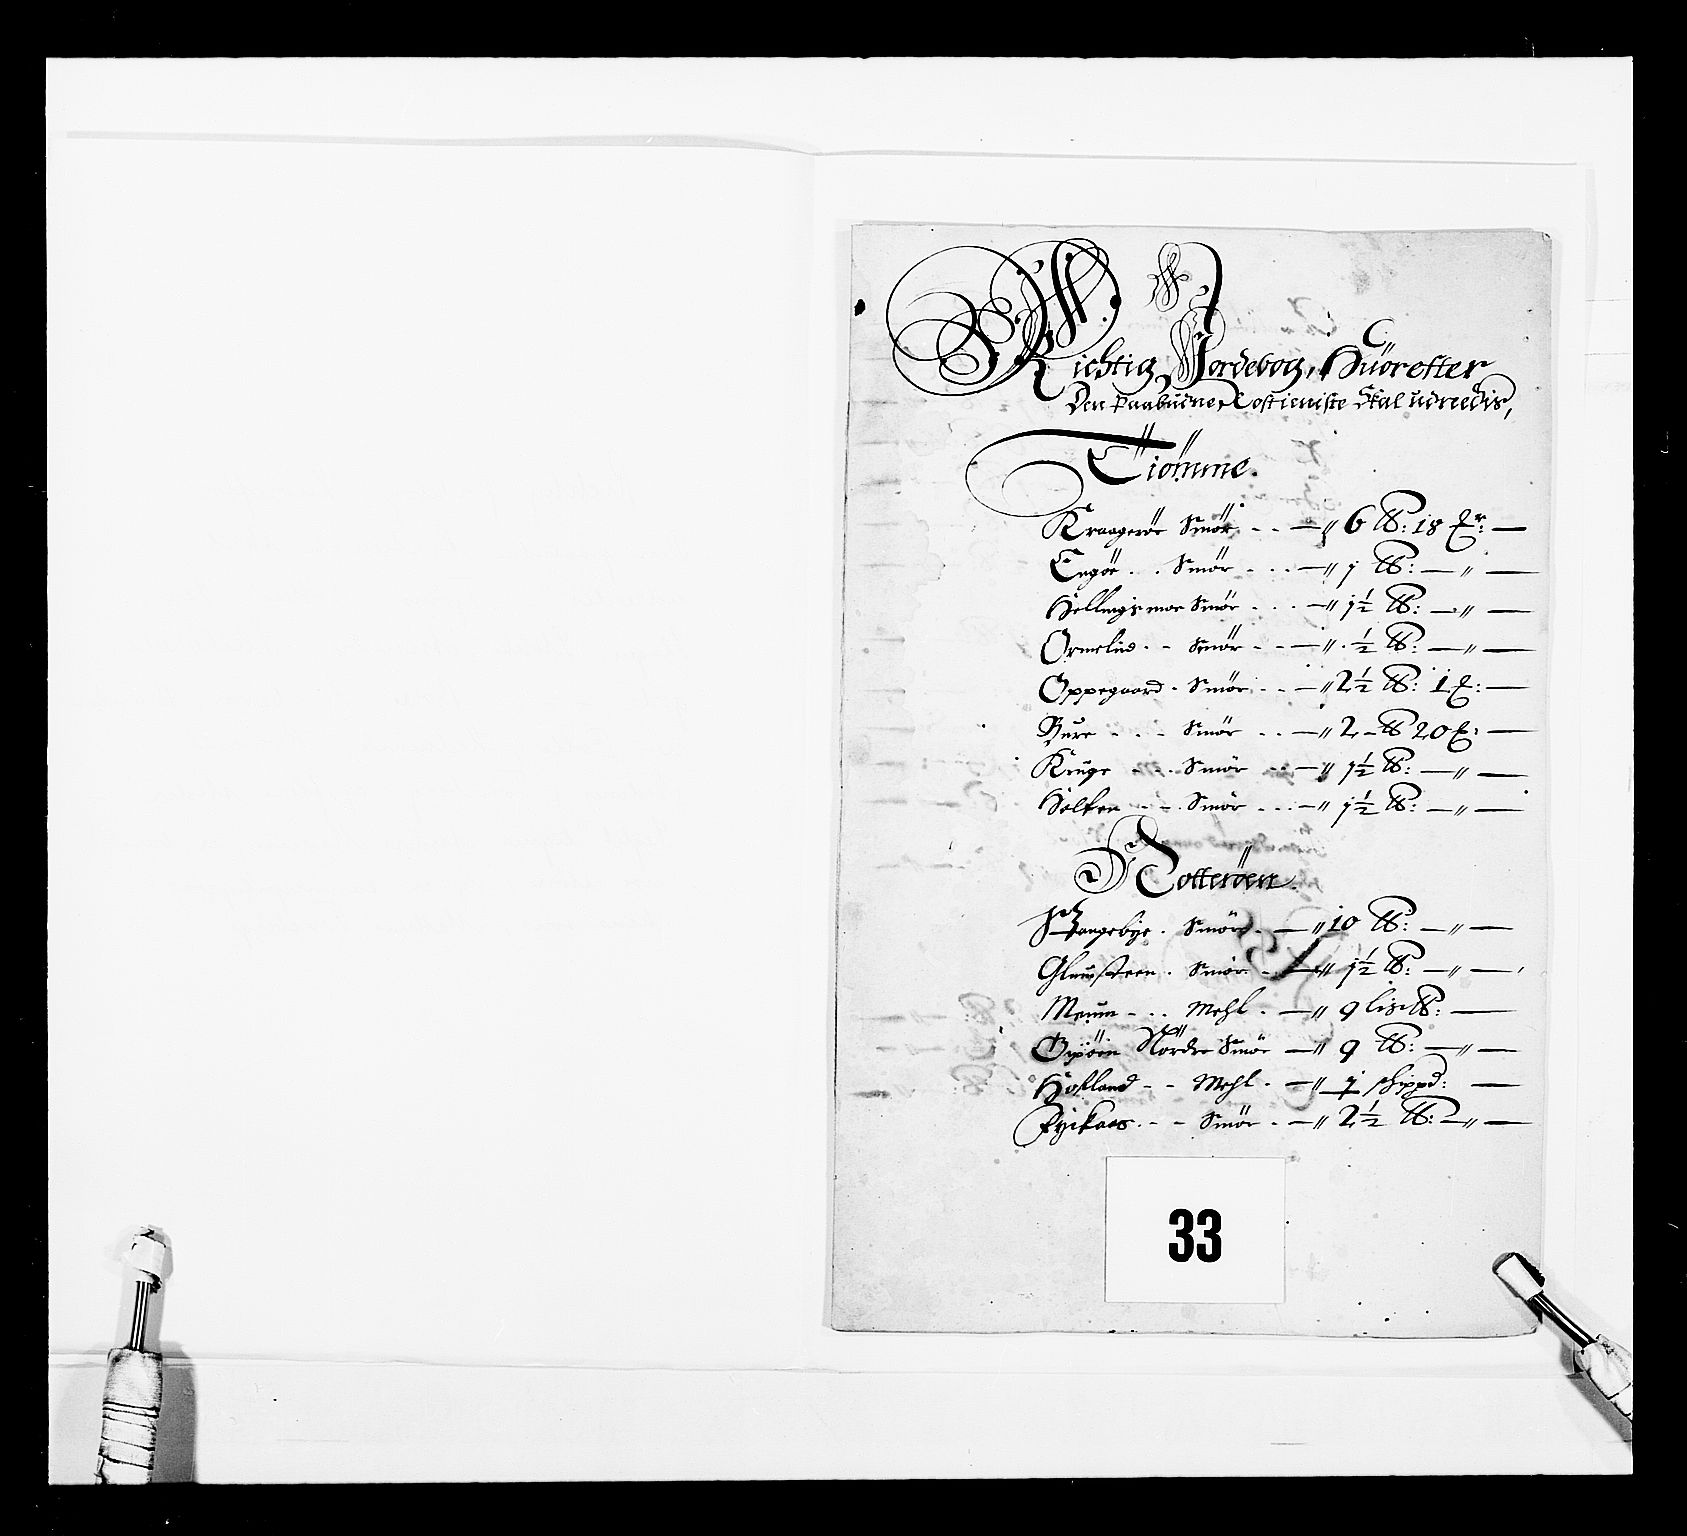 Richtig Jordebog, Huorefter
Den Paabudne Rostieniste Skal udreedis,
Tiömme.
Kraageröe Smör - - — " 6 ℔: 18 ℳr: —
Engöe . . Smör - - - — " j ℔: — " —
Hellingsmoe Smör . . . — " j½ ℔: — " —
Ormelid - - Smör - - — " ½ ℔: — " —
Oppegaard - Smör - - — " 2½ ℔: 1 ℳ: —
Bure - - - Smör - - — " 2 - ℔ 20 ℳ: —
Kruge - - - Smör - - — " j½ ℔: — " —
Holken - - - Smör - - - — " j½ ℔: — " —
Notteröen.
Hangebye . Smör - — " 10 ℔: — " —
Glumsteen . Smör - - — " j½ ℔: — " —
Meum - . . Mehl . — " 9 lis℔: —
Nordre Smör — " 9 ℔: — " —
Hofland - - Mehl . — " j shippd: —
Smör . — " 2½ ℔: — " —
33